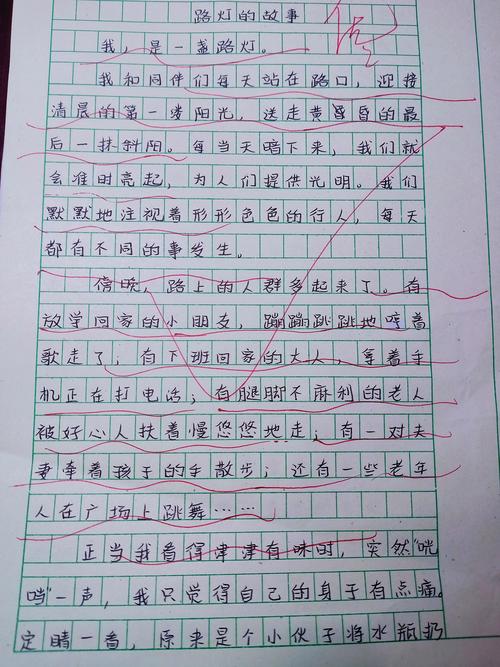 路灯的故事
优
我,是一盏路灯。
我和同伴们每天站在路口,迎接
清晨的第一缕阳光,送走黄昏的最
后一抹斜阳。每当天暗下来,我们就
会准时亮起,为人们提供光明。我们
默默地注视着形形色色的行人,每天
都有不同的事发生。
傍晚,路上的人群多起来了。有
放学回家的小朋友,蹦蹦跳跳地哼着
歌走了;有下班回家的大人,拿着手
机正在打电话;有腿脚不麻利的老人
被好心人扶着慢悠悠地走;有一对夫
妻牵着孩子的手散步;还有一些老年
人在广场上跳舞……
正当我看得津津有味时,突然“咣
当”一声,我只觉得自己的身子有点痛。
定睛一看,原来是个小伙子将水瓶扔